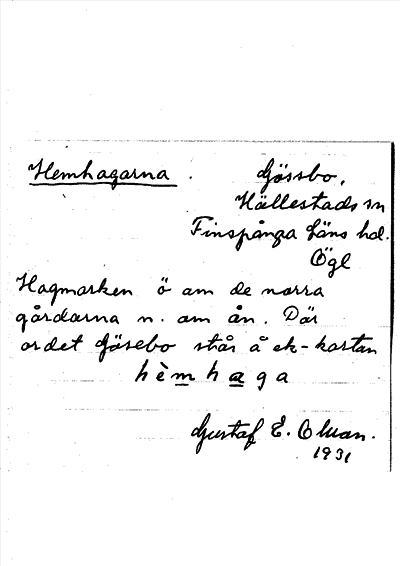 Hemhagarna.
Gössbo,
Hällestads sn
Finspånga läns hd.
Ögl
Hagmarken ö am de norra
gårdarna n. am ån. Där
ordet Gösebo står å ek-kartan
hèmhaga
Gustaf E. Olsson.
1931